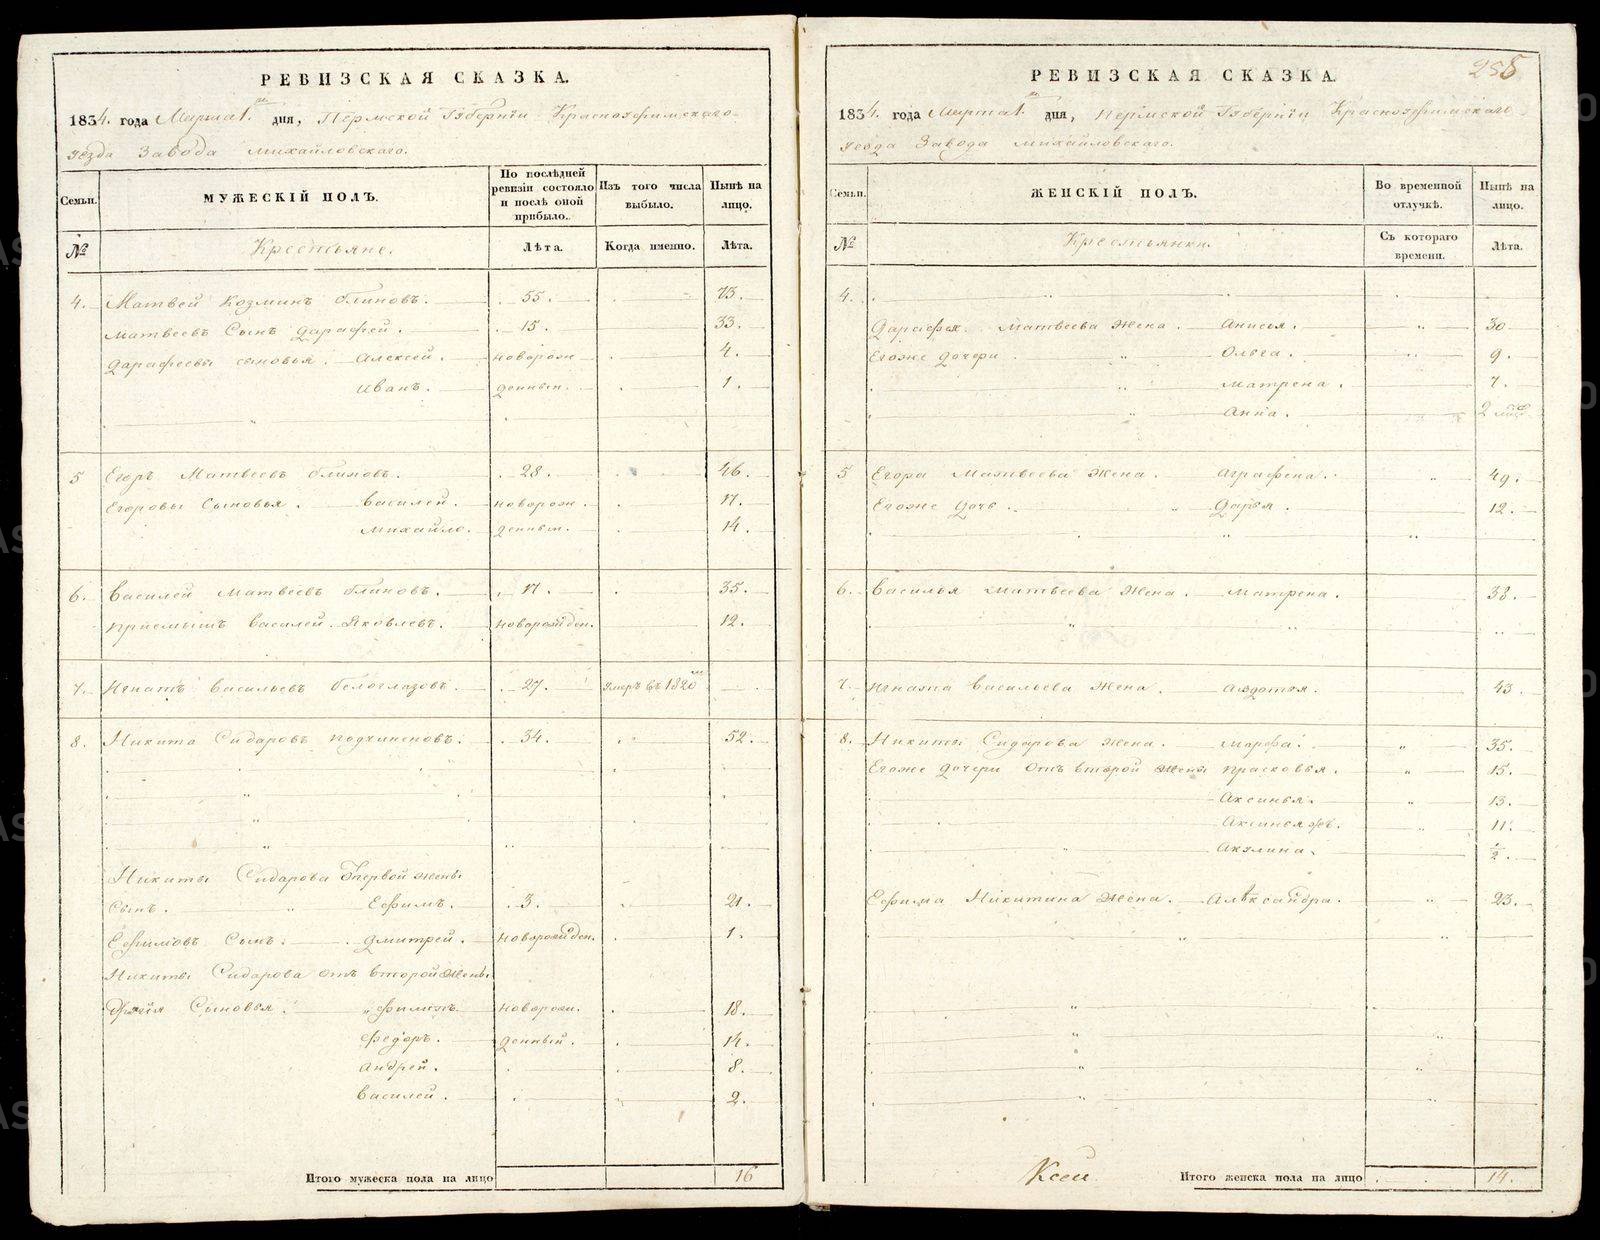 РЕВИЗСКАЯ СКАЗКА.
1834. года Марта 1. дня, Пермской Губернїи Красноуфимскаго
уезда Завода Михайловскаго.
Семьи.
МУЖЕСКІЙ ПОЛЪ.
По послѣдней ревизіи состояло и послѣ оной прибыло.
Изъ того числа выбыло.
Нынѣ на лицо.
№
Крестьяне.
Лѣта.
Когда именно.
Лѣта.
4. Матвей Козминъ Блиновъ. 55. 73.
Матвеевъ Сынъ Дарафей. 15. 33.
Дарафеевы сыновья. Алексей. новорож 4.
Иванъ. денныи. 1.
5 Егоръ Матвеевъ Блиновъ. 28. 46.
Егоровы Сыновья. Василей. новорож. 17.
Михайло. денныи. 14.
6. Василей Матвеевъ Блиновъ. 17. 35.
Приемышъ Василей Яковлевъ. новорожден. 12.
7. Игнатъ Васильевъ Белоглазовъ. 27. Умеръ въ 1820
8. Никита Сидаровъ 34. 52.
Никиты Сидарова Отпервой жены
Сынъ. Ефимъ. 3. 21.
Ефимовъ Сынъ. Дмитрей. новорожден. 1.
Никиты Сидарова отъ второй жены
Сыновья. новорож. 18.
Федоръ. денныи. 14.
Андрей. 8.
Василей. 2.
Итого мужеска пола на лицо 16
255
РЕВИЗСКАЯ СКАЗКА.
1834. года Марта 1. дня, Пермской Губернїи Красноуфимскаго
уезда Завода Михайловскаго.
Семьи.
ЖЕНСКІЙ ПОЛЪ.
Во временной отлучкѣ.
Нынѣ на лицо.
№
Крестьянки.
Съ котораго времени.
Лѣта.
4. Дарафея Матвеева жена. Анисья. 30
Егоже дочери Ольга. 9.
Матрена. 7.
Анна. 2
5 Егора Матвеева жена. Аграфена. 49.
Егоже дочь. Дарья. 12.
6. Василья Матвеева жена. Матрена. 38.
7. Игната Васильева жена. Авдотья. 43.
8. Никиты Сидарова жена. Марфа. 35.
Егоже дочери отъ второй жены Прасковья. 15.
Аксинья. 13.
Аксинья жъ. 11.
Акулина. 1/2.
Ефима Никитина жена. Александра. 23.
Ксей
Итого женска пола на лицо 14.